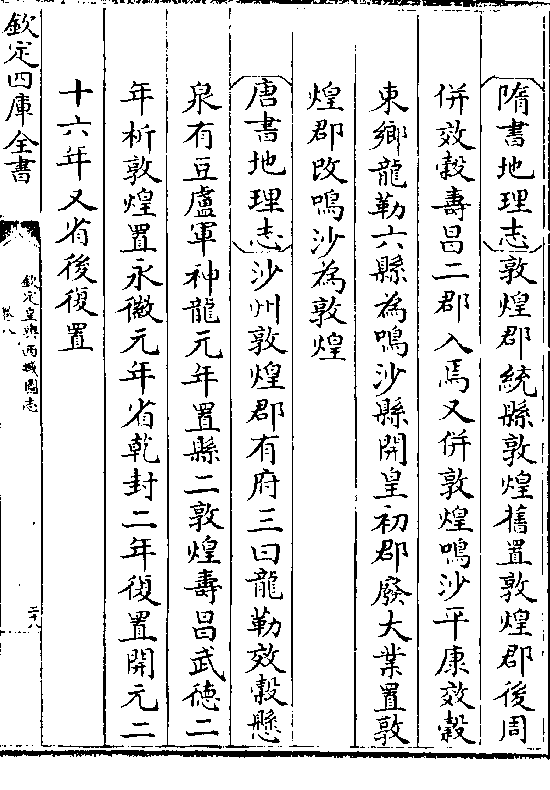 隋書地理志敦煌郡統縣敦煌舊置敦煌郡後周
併效穀壽昌二郡入焉又併敦煌鳴沙平康效穀
東鄉龍勒六縣為鳴沙縣開皇初郡廢大業置敦
煌郡改鳴沙為敦煌
唐書地理志沙州敦煌郡有府三曰龍勒效穀懸
泉有豆盧軍神龍元年置縣二敦煌壽昌武徳二
年析敦煌置永徽元年省乾封二年復置開元二
十六年又省後復置
欽定四庫全書
欽定皇輿西域圖志
卷八
二十八